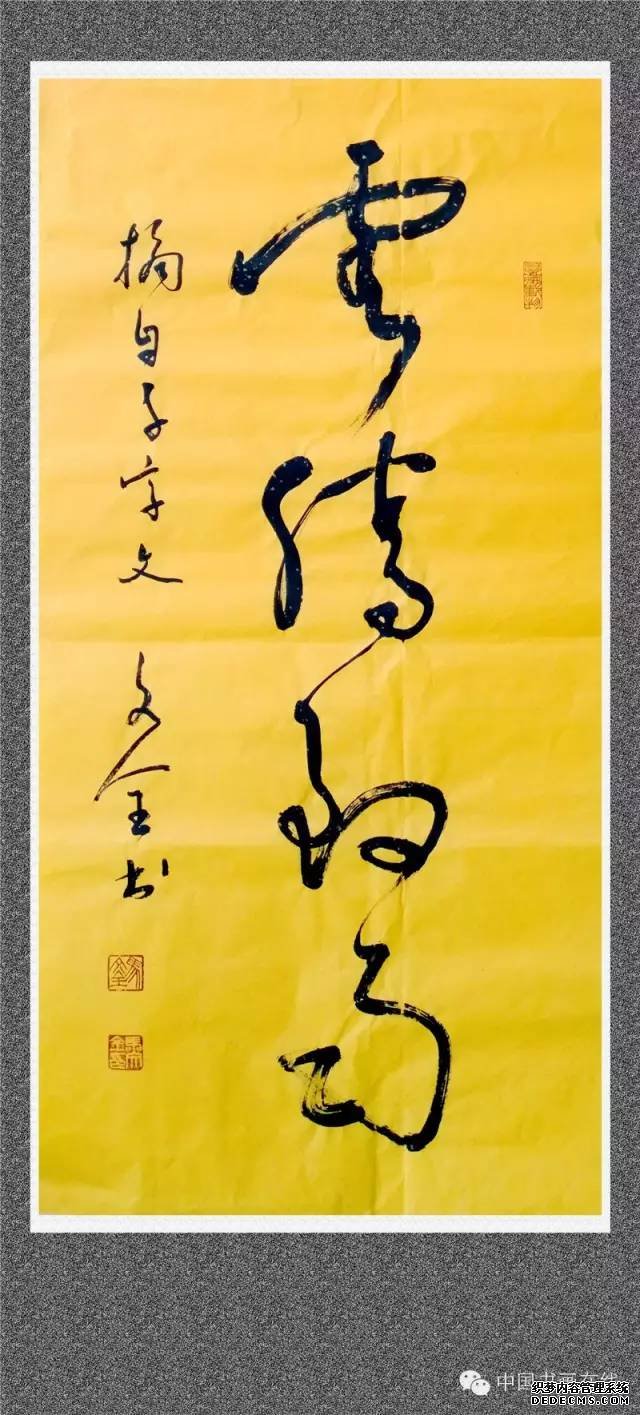 雲騰致雨
摘自千字文
文全书
中国书画在线
织梦内容管理系统
DEDECMS.COM